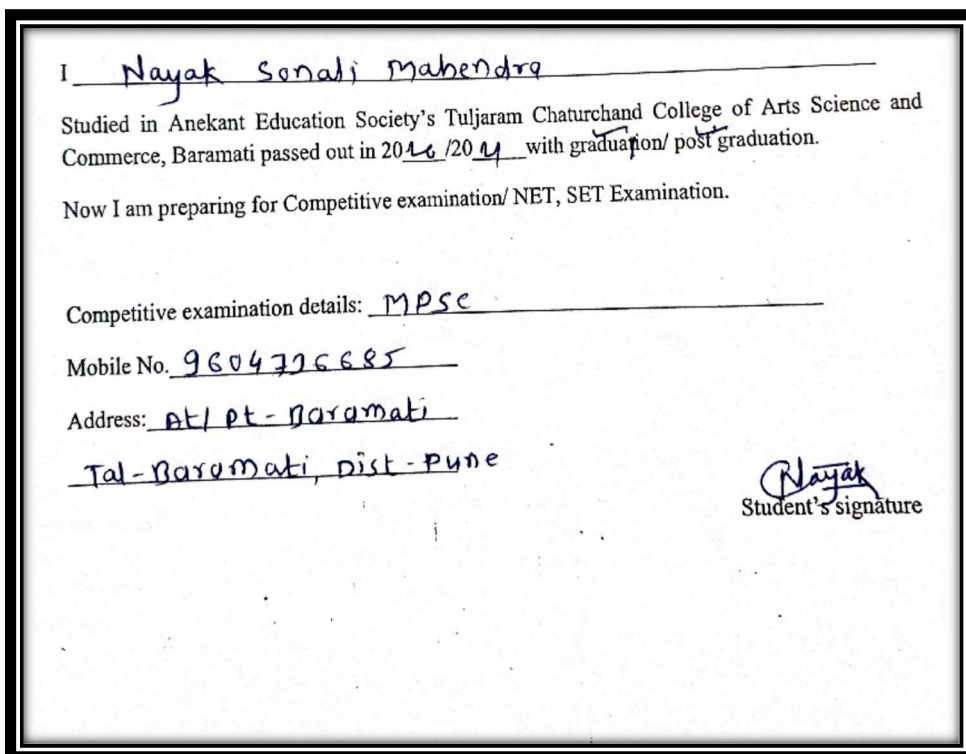 I Nayak Sonali Mahendra
Studied in Anekant Education Society's Tuljaram Chaturchand College of Arts Science and
Commerce, Baramati passed out in 20 /20 with graduation/ post graduation.
Now I am preparing for Competitive examination/ NET, SET Examination.
Competitive examination details: MPSC
Mobile No.
Address: At/ Pt - Baramati
Tal - Baramati, Dist - Pune
Nayak
Student's signature